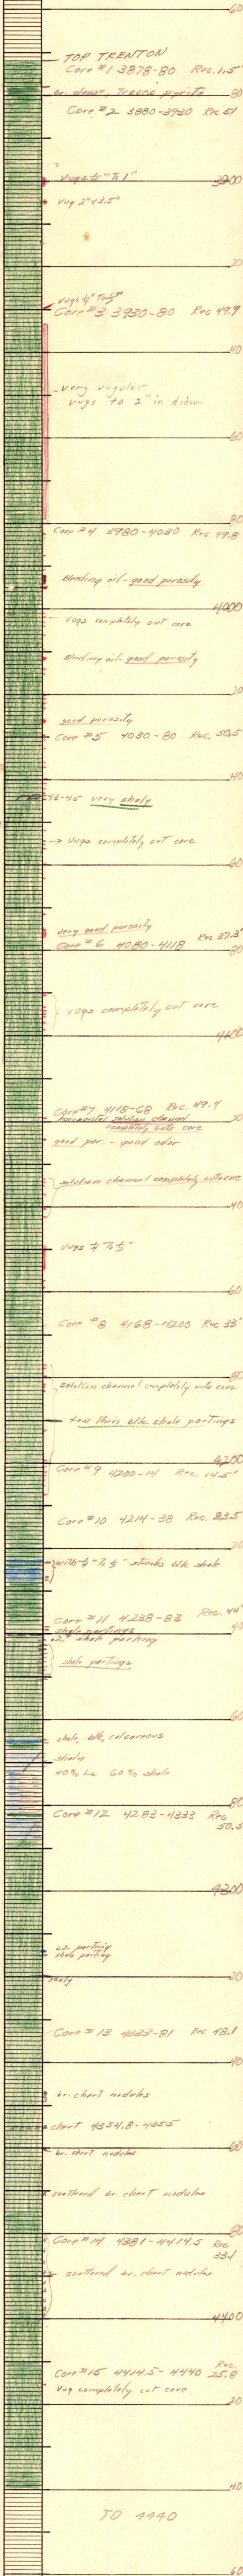 60
TOP TRENTON
Core #1 3878-80 Rec. 1.5'
br. dense, Traces pyrite
80
Core #2 3880-3930 Rec 51
Vugs ½" To 1"
3900
Vug 2" x 3.5"
20
Vugs ¼" To ½"
Core #3 3930-80 Rec 49.9
40
very vugular
vugs to 2" in diam
60
80
Core #4 3980-4030 Rec. 49.8
Bleeding oil - good porosity
4000
Vugs completely cut core
Bleeding oil - good porosity
20
good porosity
Core #5 4030-80 Rec. 50.5
40
43-45 very shaly
→ Vugs completely cut core
60
very good porosity
Core #6 4080-4118 Rec 37.3'
80
Vugs completely cut core
4100
Core #7 4118-68 Rec. 49.4
horizontal solution channel
completely cuts core
20
good por. - good odor
solution channel completely cuts core
40
Vugs ¼" To ½"
60
Core #8 4168-4200 Rec 33'
80
solution channel completely cuts core
few thin blk shale partings
4200
Core #9 4200-14 Rec. 14.5'
Core #10 4214-38 Rec. 23.5
20
with ½" streaks blk shale
Core #11 4238-83 Rec. 44'
shale partings
40
2" shale parting
shale partings
60
shale, blk, calcareous
shaly
40% Ls 60% shale
80
Core #12 4283-4333 Rec
50.5
4300
Ls. parting
shale parting
20
shaly
Core #13 4333-81 Rec 48.1
40
br. chert nodules
chert 4354.8-4355
60
br. chert nodules
scattered br. chert nodules
80
Core #14 4381-4414.5 Rec
33.1
scattered br. chert nodules
4400
Core #15 4414.5-4440 Rec
25.8
Vug completely cut core
20
40
TD 4440
60